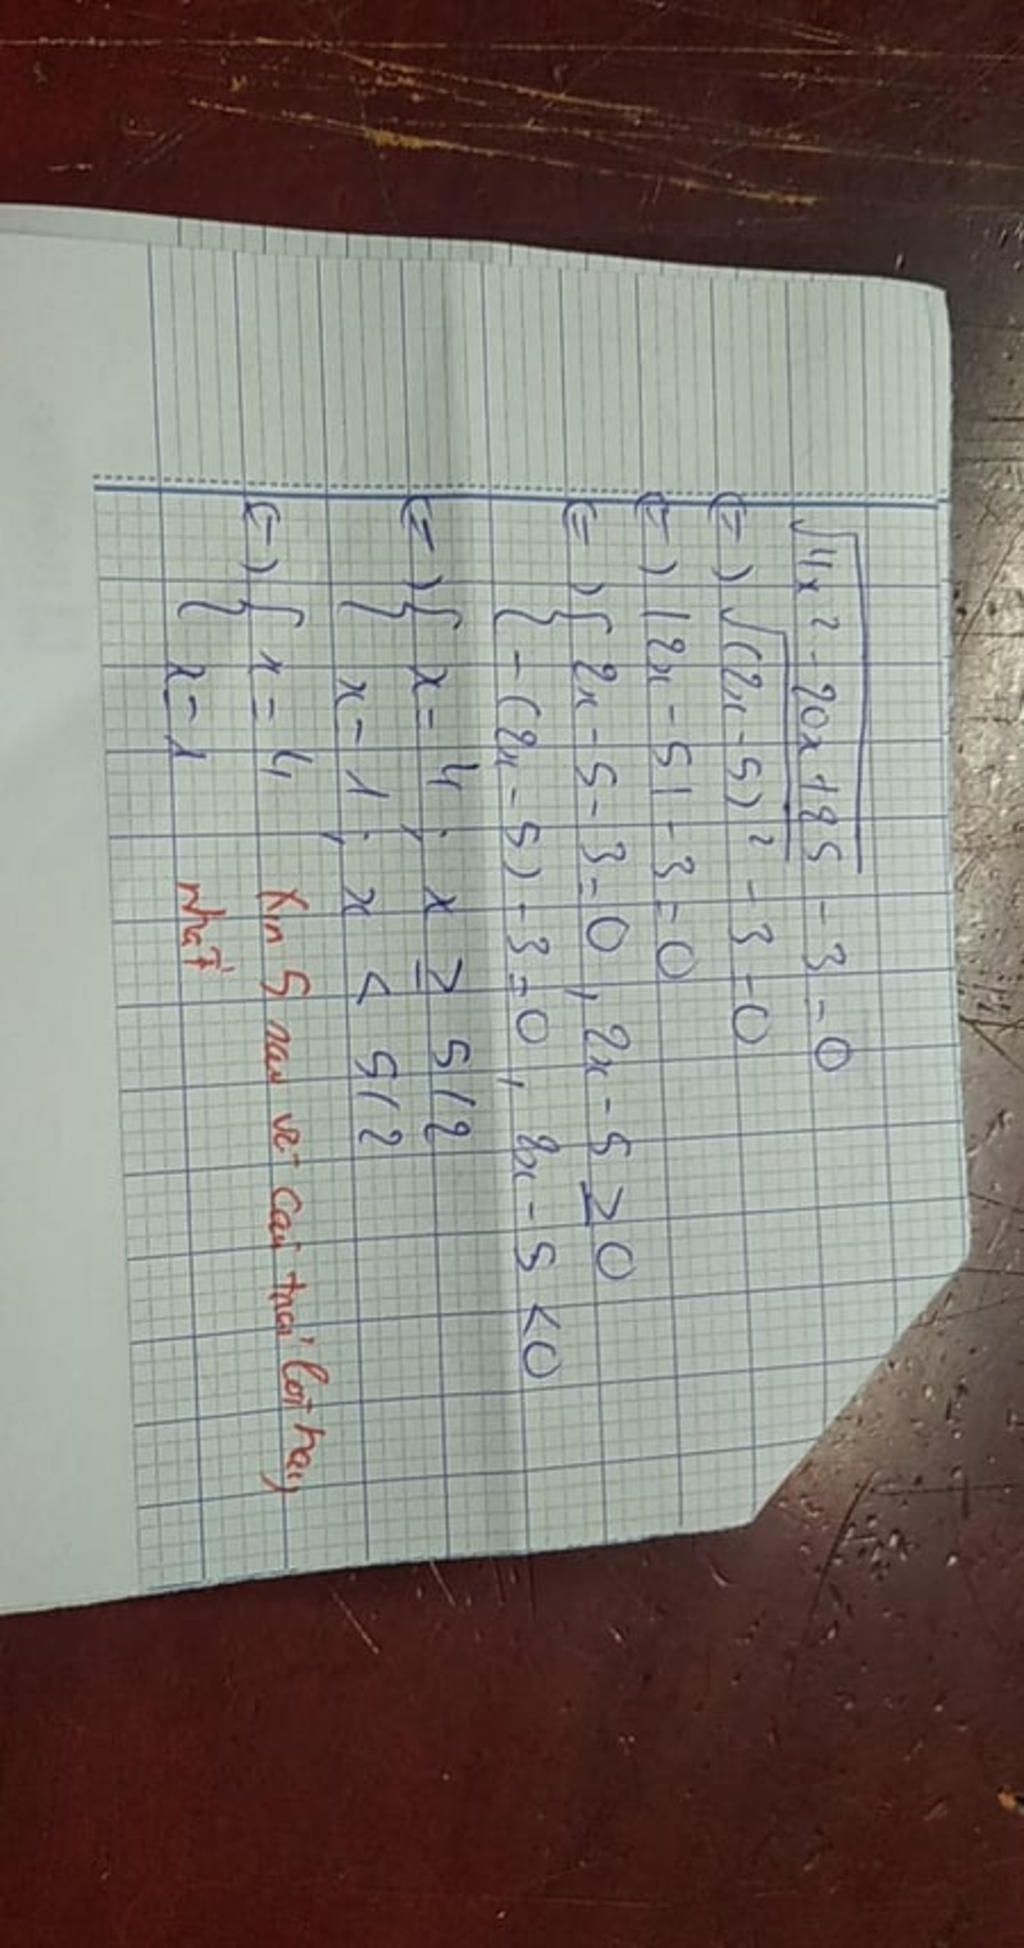 √4x² - 20x + 25 - 3 = 0
(=) √(2x - 5)² - 3 = 0
(=) |2x - 5| - 3 = 0
(=) { 2x - 5 - 3 = 0, 2x - 5 ≥ 0
{ -(2x - 5) - 3 = 0, 2x - 5 < 0
(=) { x = 4; x ≥ 5/2
{ x = 1; x < 5/2
(=) { x = 4
{ x = 1
Xin 5 sao và câu trả lời hay
nhất